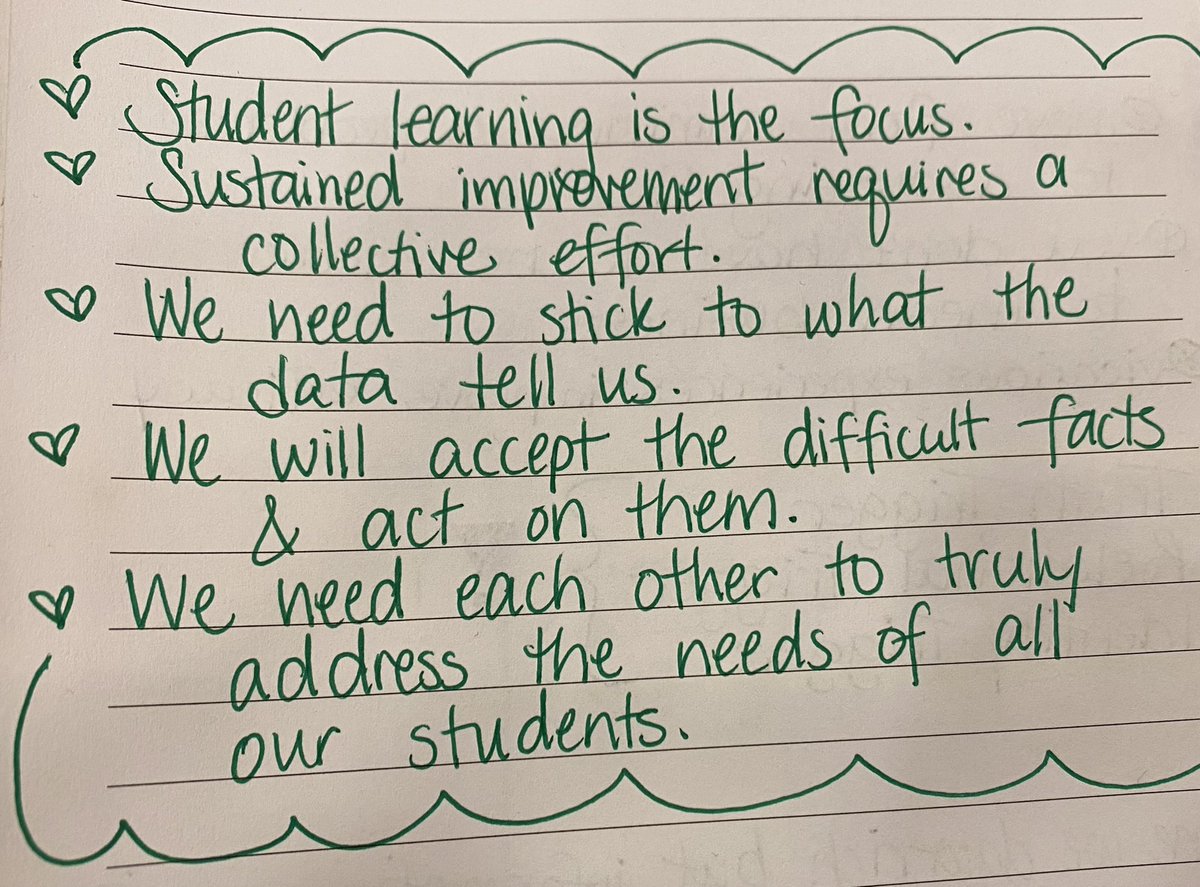 ♡ Student learning is the focus.
♡ Sustained improvement requires a
collective effort.
♡ We need to stick to what the
data tell us.
♡ We will accept the difficult facts
& act on them.
♡ We need each other to truly
address the needs of all
our students.